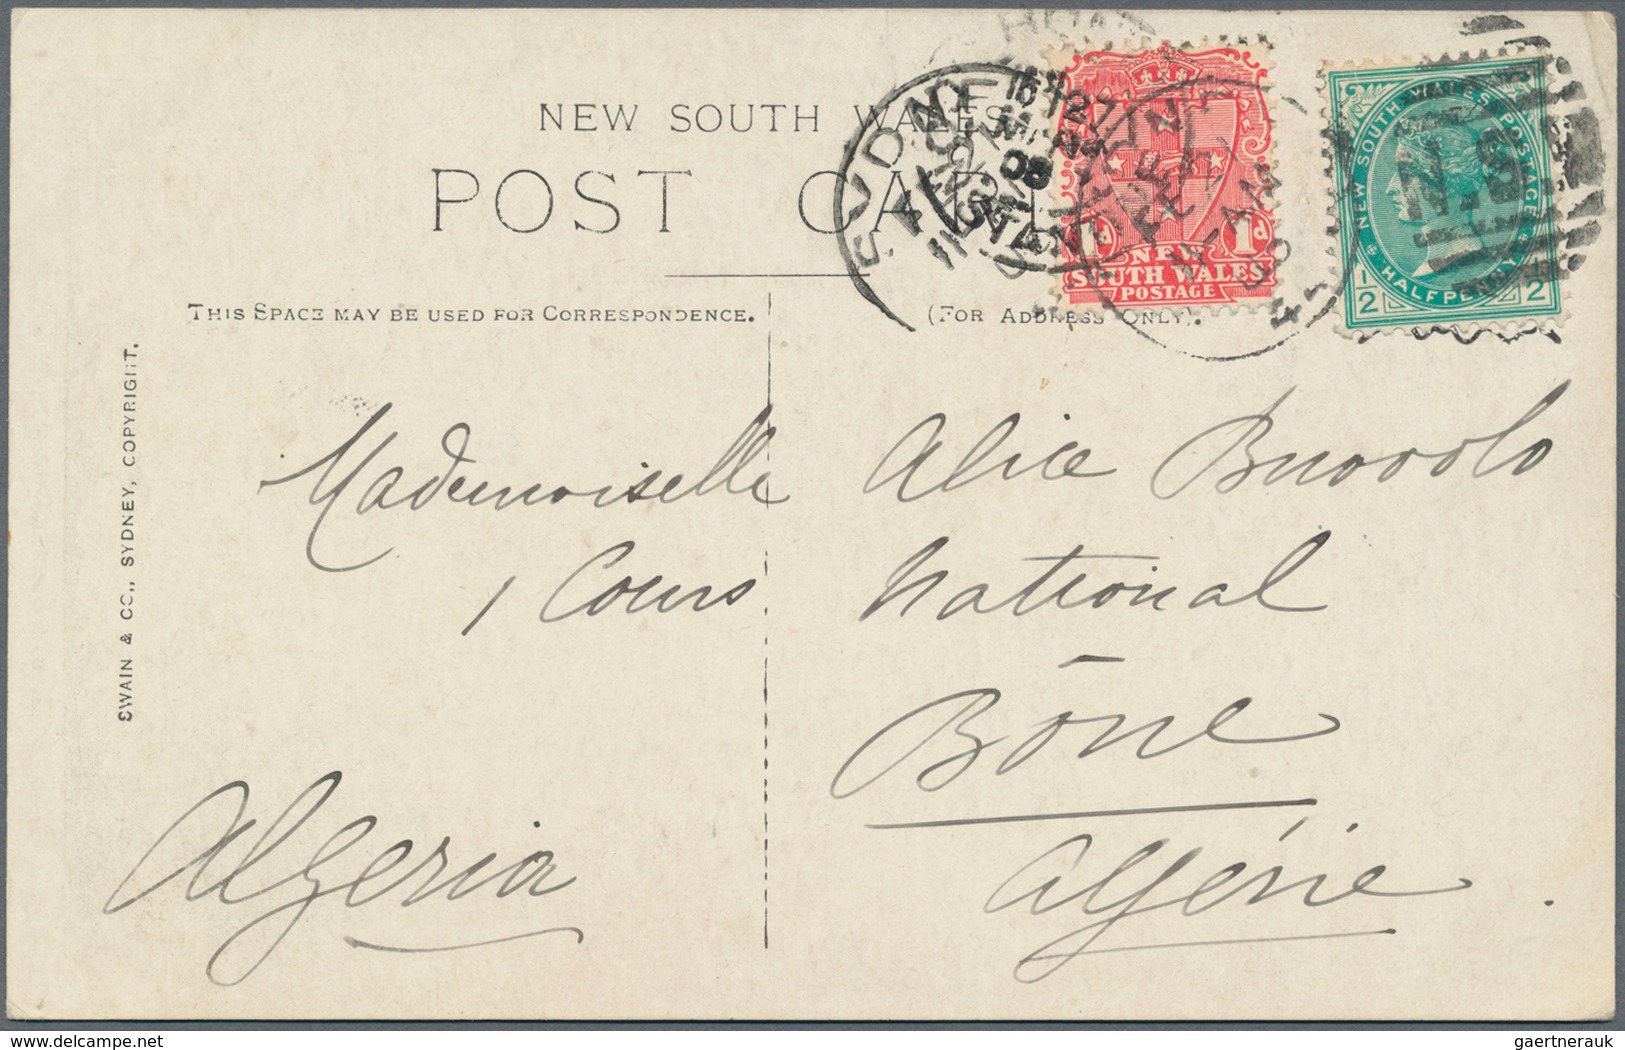 NEW SOUTH WALES
POST CA
THIS SPACE MAY BE USED FOR CORRESPONDENCE.
(FOR ADDRESS ONLY).
SWAIN & CO., SYDNEY, COPYRIGHT.
SYDNEY
1d
NEW
SOUTH WALES
POSTAGE
NEW SOUTH WALES POSTAGE
HALFPENNY
1/2
2
N.S.
Mademoiselle Alice Buovolo
1 Cours National
Bône
Algeria
Algérie.
delcampe.net
gaertnerauk